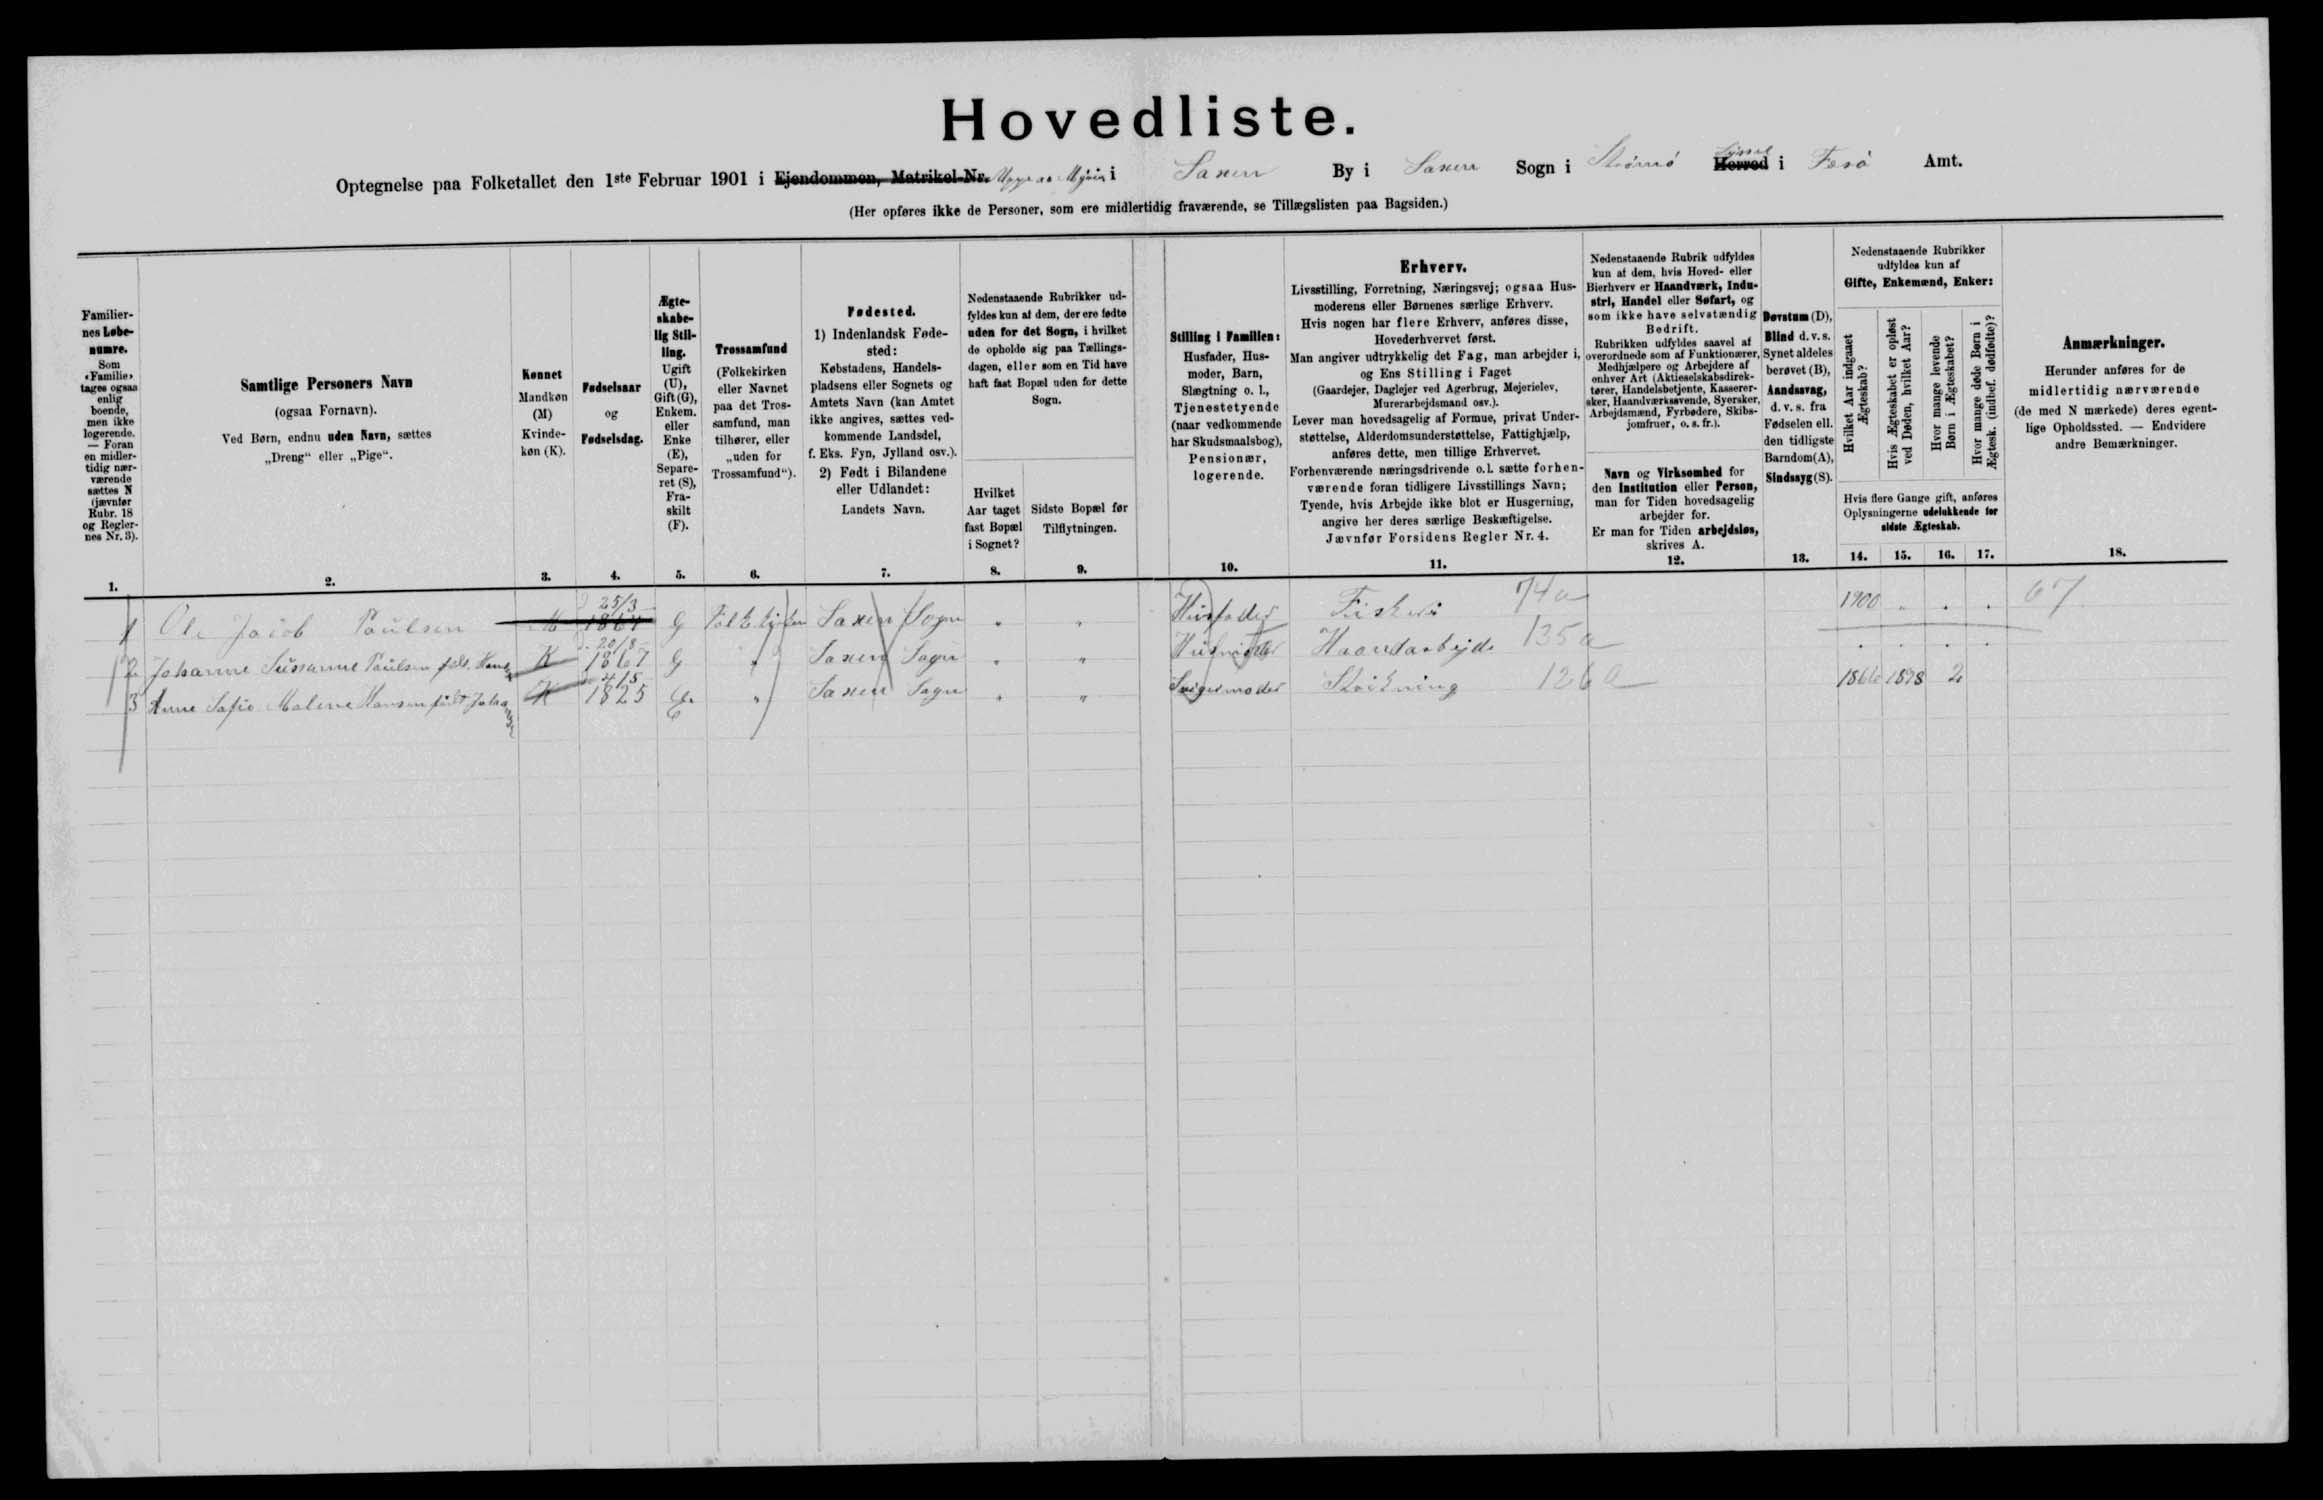 Hovedliste.
Optegnelse paa Folketallet den 1ste Februar 1901 i Ejendommen, Matrikel-Nr. i Saxen By i Saxen Sogn i Strömö Syssel Herred i Færö Amt.
(Her opføres ikke de Personer, som ere midlertidig fraværende, se Tillægslisten paa Bagsiden.)
Familier-
nes Løbe-
numre.
Som
«Familie»
tages ogsaa
enlig
boende,
men ikke
logerende.
— Foran
en midler-
tidig nær-
værende
sættes N
(jævnfør
Rubr. 18
og Regler-
nes Nr. 3).
1.
Samtlige Personers Navn
(ogsaa Fornavn).
Ved Børn, endnu uden Navn, sættes
„Dreng“ eller „Pige“.
2.
Kønnet
Mandkøn
(M)
Kvinde-
køn (K).
3.
Fødselsaar
og
Fødselsdag.
4.
Ægte-
skabe-
lig Stil-
ling.
Ugift
(U),
Gift (G),
Enkem.
eller
Enke
(E),
Separe-
ret (S),
Fra-
skilt
(F).
5.
Trossamfund
(Folkekirken
eller Navnet
paa det Tros-
samfund, man
tilhører, eller
„uden for
Trossamfund“).
6.
Fødested.
1) Indenlandsk Føde-
sted:
Købstadens, Handels-
pladsens eller Sognets og
Amtets Navn (kan Amtet
ikke angives, sættes ved-
kommende Landsdel,
f. Eks. Fyn, Jylland osv.).
2) Født i Bilandene
eller Udlandet:
Landets Navn.
7.
Nedenstaaende Rubrikker ud-
fyldes kun af dem, der ere fødte
uden for det Sogn, i hvilket
de opholde sig paa Tællings-
dagen, eller som en Tid have
haft fast Bopæl uden for dette
Sogn.
Hvilket
Aar taget
fast Bopæl
i Sognet?
8.
Sidste Bopæl før
Tilflytningen.
9.
Stilling i Familien:
Husfader, Hus-
moder, Barn,
Slægtning o. l.,
Tjenestetyende
(naar vedkommende
har Skudsmaalsbog),
Pensionær,
logerende.
10.
Erhverv.
Livsstilling, Forretning, Næringsvej; ogsaa Hus-
moderens eller Børnenes særlige Erhverv.
Hvis nogen har flere Erhverv, anføres disse,
Hovederhvervet først.
Man angiver udtrykkelig det Fag, man arbejder i,
og Ens Stilling i Faget
(Gaardejer, Daglejer ved Agerbrug, Mejerielev,
Murerarbejdsmand osv.).
Lever man hovedsagelig af Formue, privat Under-
støttelse, Alderdomsunderstøttelse, Fattighjælp,
anføres dette, men tillige Erhvervet.
Forhenværende næringsdrivende o. l. sætte forhen-
værende foran tidligere Livsstillings Navn;
Tyende, hvis Arbejde ikke blot er Husgerning,
angive her deres særlige Beskæftigelse.
Jævnfør Forsidens Regler Nr. 4.
11.
Nedenstaaende Rubrik udfyldes
kun af dem, hvis Hoved- eller
Bierhverv er Haandværk, Indu-
stri, Handel eller Søfart, og
som ikke have selvstændig
Bedrift.
Rubrikken udfyldes saavel af
overordnede som af Funktionærer,
Medhjælpere og Arbejdere af
enhver Art (Aktieselskabsdirek-
tører, Handelsbetjente, Kasserer-
sker, Haandværkssvende, Syersker,
Arbejdsmænd, Fyrbødere, Skibs-
jomfruer, o. s. fr.).
Navn og Virksomhed for
den Institution eller Person,
man for Tiden hovedsagelig
arbejder for.
Er man for Tiden arbejdsløs,
skrives A.
12.
Døvstum (D),
Blind d. v. s.
Synet aldeles
berøvet (B),
Aandssvag,
d. v. s. fra
Fødselen ell.
den tidligste
Barndom (A),
Sindssyg (S).
13.
Nedenstaaende Rubrikker
udfyldes kun af
Gifte, Enkemænd, Enker:
Hvilket Aar indgaaet
Ægteskab?
Hvis Ægteskabet er opløst
ved Døden, hvilket Aar?
Hvor mange levende
Børn i Ægteskabet?
Hvor mange døde Børn i
Ægtesk. (indbef. dødfødte)?
Hvis flere Gange gift, anføres
Oplysningerne udelukkende for
sidste Ægteskab.
14. 15. 16. 17.
Anmærkninger.
Herunder anføres for de
midlertidig nærværende
(de med N mærkede) deres egent-
lige Opholdssted. — Endvidere
andre Bemærkninger.
18.
1 Ole Jacob Poulsen M 25/3 1864 G Folkekirken Saxen Sogn " " Husfader Fiskeri 74a 1900 . . . 67
2 Johanne Sussanne Poulsen født Hansen K 20/8 1867 G " Saxen Sogn " " Husmoder Haandarbejde 135a . . . .
3 Anne Sofie Malene Hansen født K 4/5 1825 E " Saxen Sogn " " Svigermoder Strikning 126a 1866 1898 2